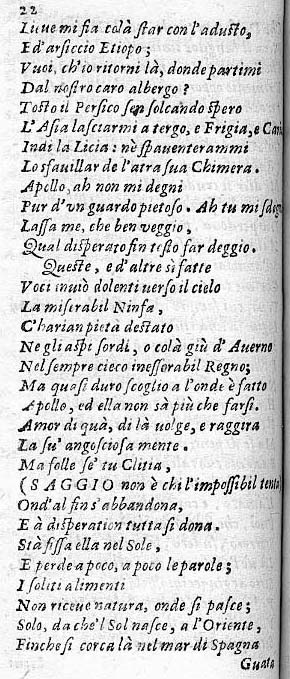 22
Lieve mi fia colà star con l'adusto,
E d'arsiccio Etiopo;
Vuoi, ch'io ritorni là, donde partimi
Dal nostro caro albergo?
Tosto il Persico sen solcando spero
L'Asia lasciarmi a tergo, e Frigia, e Cari
Indi la Licia: nè spauenterammi
Lo sfauillar de l'atra sua Chimera.
Apollo, ah non mi degni
Pur d'vn guardo pietoso. Ah tu mi sdeg
Lassa me, che ben veggio,
Qual disperato fin testo far deggio.
Queste, e d'altre sì fatte
Voci inuiò dolenti uerso il cielo
La miserabil Ninfa,
C'harian pietà destato
Ne gli aspi sordi, o colà giù d'Auerno
Nel sempre cieco inessorabil Regno;
Ma quasi duro scoglio a l'onde è fatto
Apollo, ed ella non sà più che farsi.
Amor di quà, di là uolge, e raggira
La su' angosciosa mente.
Ma folle se' tu Clitia,
(SAGGIO non è chi l'impossibil tenta
Ond'al fin s'abbandona,
E à disperation tutta si dona.
Stà fissa ella nel Sole,
E perde a poco, a poco le parole;
I soliti alimenti
Non riceue natura, onde si pasce;
Solo, da che'l Sol nasce, a l'Oriente,
Finche si corca là nel mar di Spagna
Guata